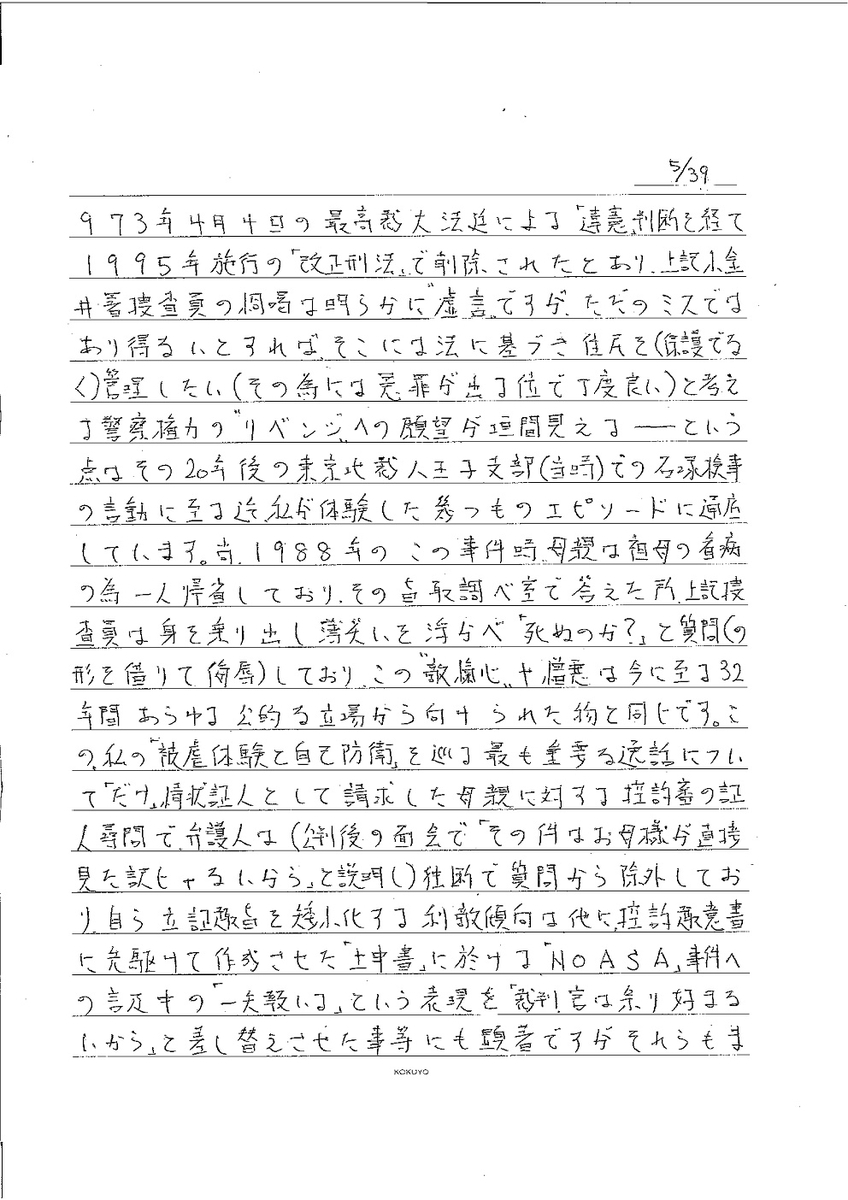 5/39
973年4月4日の最高裁大法廷による「違憲」判断を経て
1995年施行の「改正刑法」で削除されたとおり、上記小金
井署捜査員の恫喝は明らかに“虚言”ですが、ただのミスでは
あり得ないとすれば、そこには法に基づき住民を(保護でな
く)管理したい(その為には冤罪が出る位で丁度良い)と考え
る警察権力の“リベンジ”への願望が垣間見える——という
点はその20年後の東京地裁八王子支部(当時)での石塚検事
の言動に至る迄、私が体験した幾つものエピソードに通底
しています。尚、1988年のこの事件時、母親は祖母の看病
の為一人帰省しており、その旨取調べ室で答えた所、上記捜
査員は身を乗り出し薄笑いを浮かべ「死ぬのか?」と質問(の
形を借りて侮辱)しており、この“敵愾心”や憎悪は今に至る32
年間あらゆる公的な立場から向けられた物と同じです。こ
の、私の「被虐体験と自己防衛」を巡る最も重要な逸話につい
て「だけ」情状証人として請求した母親に対する控訴審の証
人尋問で、弁護人は(公判後の面会で「その件はお母様が直接
見た訳じゃないから」と説明し)独断で質問から除外してお
り、自ら立証趣旨を矮小化する利敵傾向は他に、控訴趣意書
に先駆けて作成させた「上申書」に於ける「NOASA」事件へ
の言及中の「一矢報いる」という表現を「裁判官は余り好まな
いから」と差し替えさせた事等にも顕著ですがそれらもま
KOKUYO